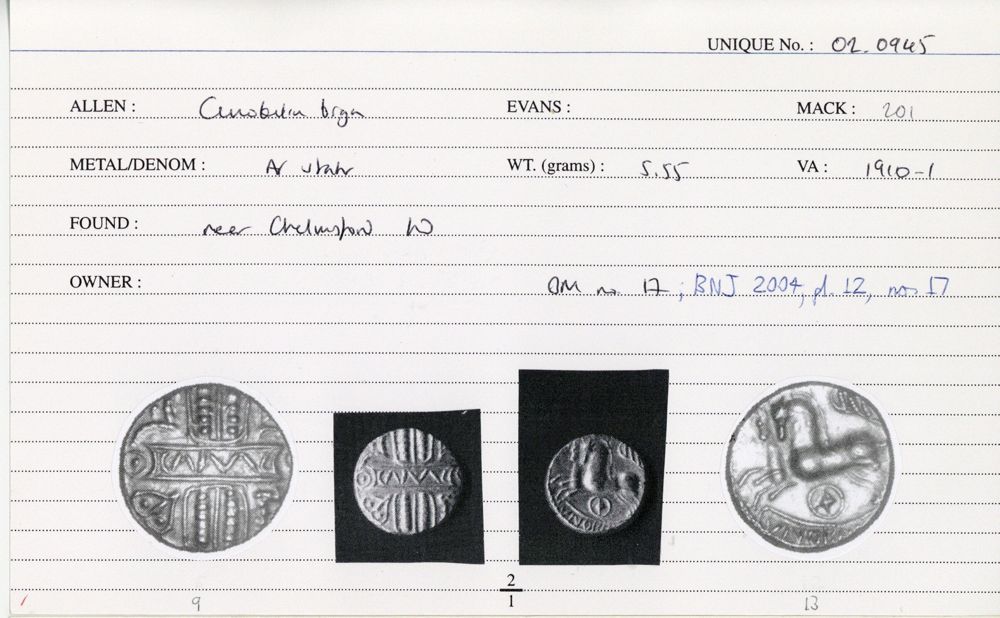 UNIQUE No. : 02.0945
ALLEN : Cunobelin biga EVANS : MACK : 201
METAL/DENOM : AV stater WT. (grams) : 5.55 VA : 1910-1
FOUND : near Chelmsford
OWNER : no. 17 ; BNJ 2004, pl. 12, no. 17
CAMVL
CAMVL
CVNOBE
2
9 1 13